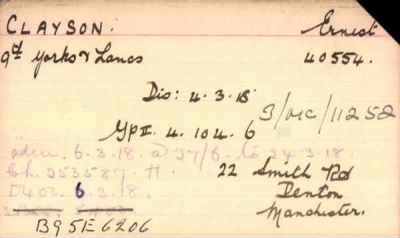 CLAYSON. Ernest
9th Yorks & Lancs 40554.
Dis: 4.3.18
3/MC/11252
Gp II. 4. 104. 6
adm. 6.3.18. @ 27/6 to 24.3.18.
Ch. 253587. H. 22 Smith Rd
D400. 6.3.18. Denton
Manchester.
B95E6206